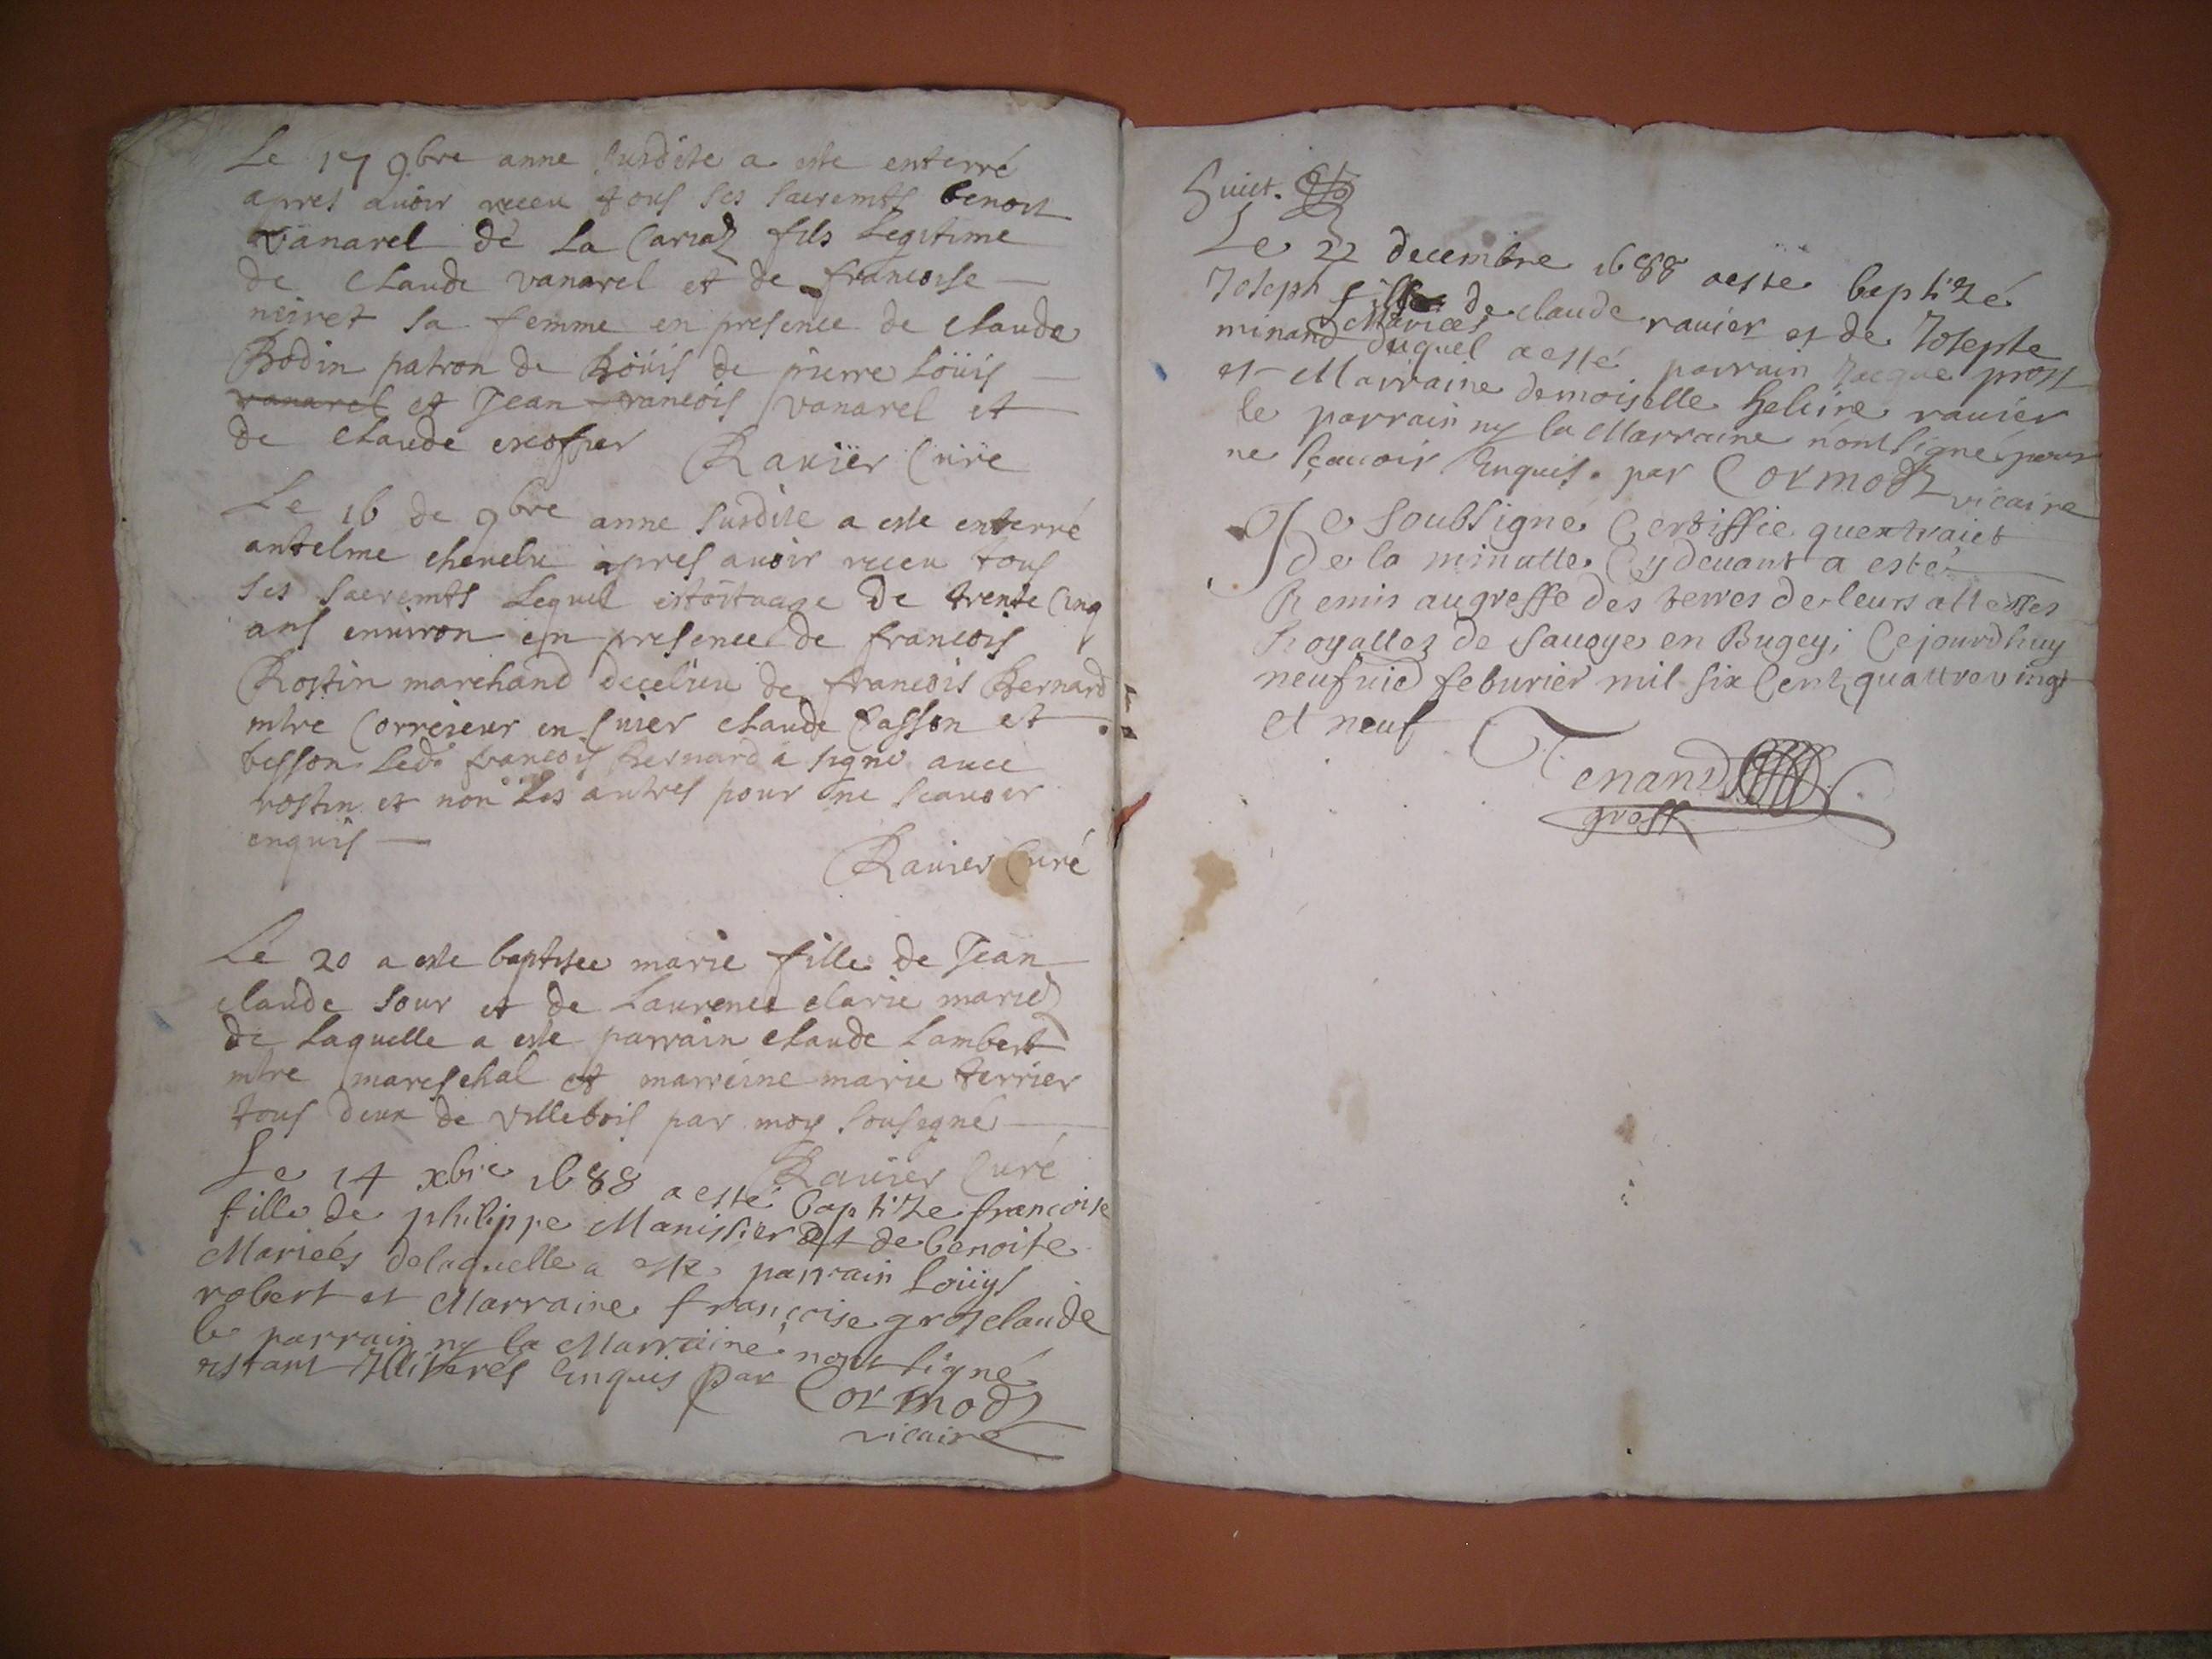 Le 17 9bre anne susdite a este enterré
apres auoir receu tous ses sacremts benoit
vanarel de la Cariaz fils Legitime
de claude vanarel et de francoise
neiret sa femme en presence de claude
Bodin patron de de pierre Loüis
vanarel et Jean francois vanarel et
de claude excoffier Rauier Curé
Le 16 de 9bre anne susdite a este enterré
antelme chenelu apres auoir receu tous
ses sacremts Lequel estoit aage de trente Cinq
ans enuiron en presence de francois
Rostin marchand decelieu de francois Bernard
mtre Corroieur en claude Casson et
besson Ledt francois Bernard a signé auec
rostin et non Les autres pour ne scauoir
enquis
Rauier Curé
Le 20 a este baptisee marie fille de Jean
claude sour et de Laurence clarie mariez
de Laquelle a este parrain claude Lambert
mtre mareschal et marreine marie terrier
tous deux de villebois par moy sousigné
Rauier Curé
Le 14 xbre 1688 a esté baptize francoise
fille de philippe Manissier et de benoite
Marieés delaquelle a esté parrain Loüys
robert et Marraine françoise grosclaude
le parrain ny la Marraine nont signé
estant Illiterés Enquis par Cormodz
vicaire
Suict.
Le 22 decembre 1688 a esté baptizé
Joseph fils de claude rauier et de Josepte
minand Mariés duquel a esté parrain Jacque prost
et Marraine demoiselle heleine rauier
le parrain ny la Marraine n'ont signé pour
ne sçauoir Enquis. par Cormodz vicaire
Je soubsigné Certiffie quextraict
de la minutte Cy deuant a esté
Remis au greffe des terres de leurs altesses
Royalles de sauoye en Bugey, Cejourdhuy
neufuie feburier mil six Cent quattre vingt
et neuf
Tenand
greff